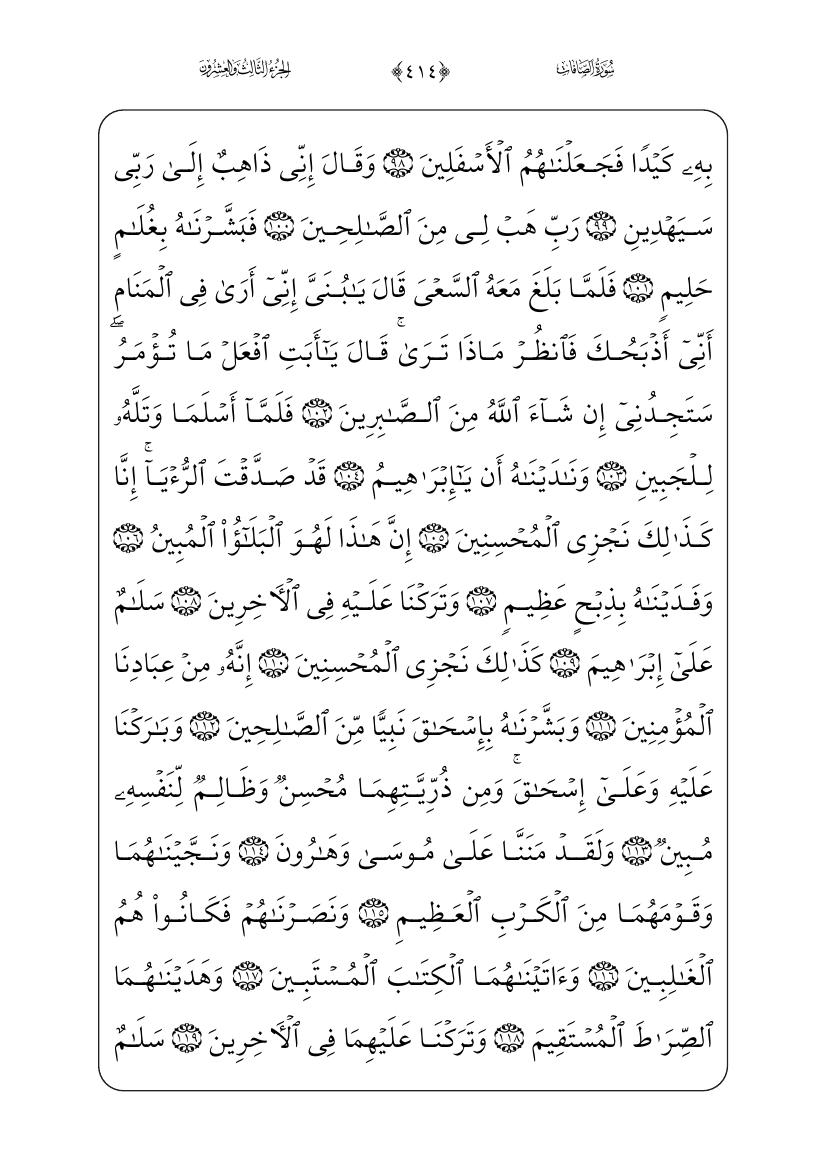 سُورَةُ الصَّافَّاتِ ﴿٤١٤﴾ الجُزْءُ الثَّالِثُ وَالعِشْرُونَ
بِهِۦ كَيۡدٗا فَجَعَلۡنَٰهُمُ ٱلۡأَسۡفَلِينَ ٩٨ وَقَالَ إِنِّي ذَاهِبٌ إِلَىٰ رَبِّي
سَيَهۡدِينِ ٩٩ رَبِّ هَبۡ لِي مِنَ ٱلصَّٰلِحِينَ ١٠٠ فَبَشَّرۡنَٰهُ بِغُلَٰمٍ
حَلِيمٖ ١٠١ فَلَمَّا بَلَغَ مَعَهُ ٱلسَّعۡيَ قَالَ يَٰبُنَيَّ إِنِّيٓ أَرَىٰ فِي ٱلۡمَنَامِ
أَنِّيٓ أَذۡبَحُكَ فَٱنظُرۡ مَاذَا تَرَىٰۚ قَالَ يَٰٓأَبَتِ ٱفۡعَلۡ مَا تُؤۡمَرُۖ
سَتَجِدُنِيٓ إِن شَآءَ ٱللَّهُ مِنَ ٱلصَّٰبِرِينَ ١٠٢ فَلَمَّآ أَسۡلَمَا وَتَلَّهُۥ
لِلۡجَبِينِ ١٠٣ وَنَٰدَيۡنَٰهُ أَن يَٰٓإِبۡرَٰهِيمُ ١٠٤ قَدۡ صَدَّقۡتَ ٱلرُّءۡيَآۚ إِنَّا
كَذَٰلِكَ نَجۡزِي ٱلۡمُحۡسِنِينَ ١٠٥ إِنَّ هَٰذَا لَهُوَ ٱلۡبَلَٰٓؤُاْ ٱلۡمُبِينُ ١٠٦
وَفَدَيۡنَٰهُ بِذِبۡحٍ عَظِيمٖ ١٠٧ وَتَرَكۡنَا عَلَيۡهِ فِي ٱلۡأٓخِرِينَ ١٠٨ سَلَٰمٌ
عَلَىٰٓ إِبۡرَٰهِيمَ ١٠٩ كَذَٰلِكَ نَجۡزِي ٱلۡمُحۡسِنِينَ ١١٠ إِنَّهُۥ مِنۡ عِبَادِنَا
ٱلۡمُؤۡمِنِينَ ١١١ وَبَشَّرۡنَٰهُ بِإِسۡحَٰقَ نَبِيّٗا مِّنَ ٱلصَّٰلِحِينَ ١١٢ وَبَٰرَكۡنَا
عَلَيۡهِ وَعَلَىٰٓ إِسۡحَٰقَۚ وَمِن ذُرِّيَّتِهِمَا مُحۡسِنٞ وَظَالِمٞ لِّنَفۡسِهِۦ
مُبِينٞ ١١٣ وَلَقَدۡ مَنَنَّا عَلَىٰ مُوسَىٰ وَهَٰرُونَ ١١٤ وَنَجَّيۡنَٰهُمَا
وَقَوۡمَهُمَا مِنَ ٱلۡكَرۡبِ ٱلۡعَظِيمِ ١١٥ وَنَصَرۡنَٰهُمۡ فَكَانُواْ هُمُ
ٱلۡغَٰلِبِينَ ١١٦ وَءَاتَيۡنَٰهُمَا ٱلۡكِتَٰبَ ٱلۡمُسۡتَبِينَ ١١٧ وَهَدَيۡنَٰهُمَا
ٱلصِّرَٰطَ ٱلۡمُسۡتَقِيمَ ١١٨ وَتَرَكۡنَا عَلَيۡهِمَا فِي ٱلۡأٓخِرِينَ ١١٩ سَلَٰمٌ